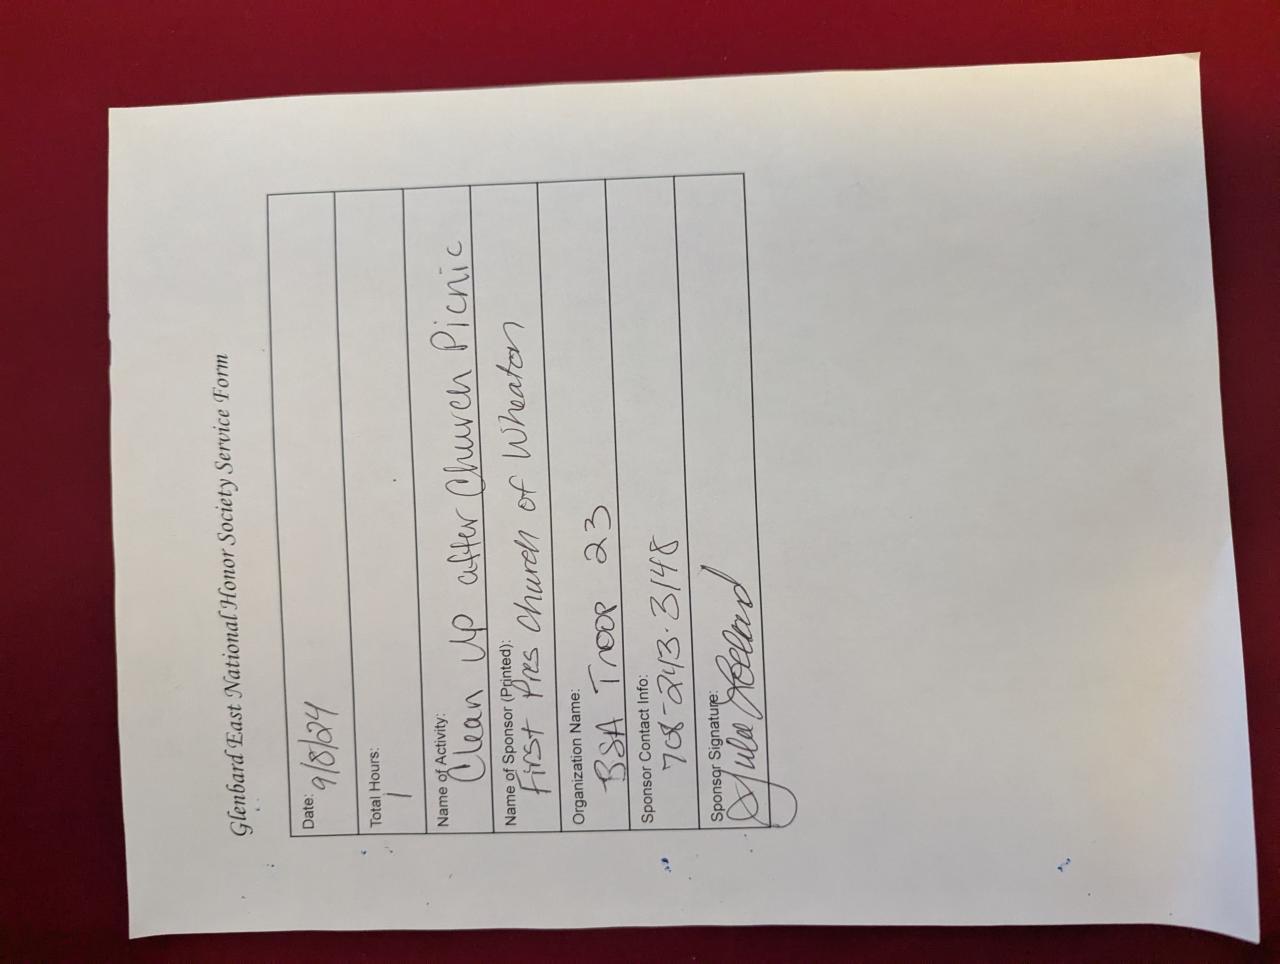 Glenbard East National Honor Society Service Form
Date: 9/8/24
Total Hours:
1
Name of Activity:
Clean Up after Church Picnic
Name of Sponsor (Printed):
First Pres Church of Wheaton
Organization Name:
BSA Troop 23
Sponsor Contact Info:
708-243-3148
Sponsor Signature: